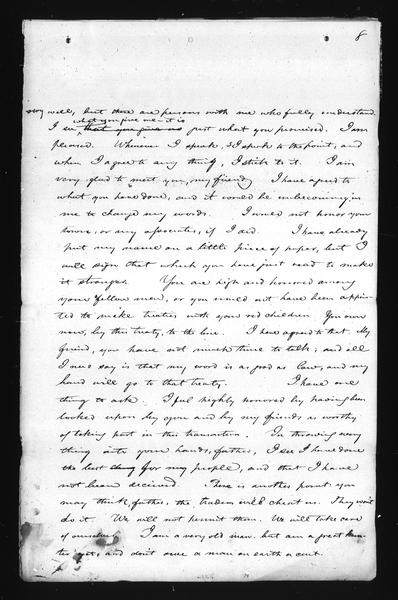 8
very well, but there are persons with me who fully understand
what you give me - it is
I see, that you give us just what you promised. I am
pleased. Whenever I speak, I speak to the point, and
when I agree to any thing, I stick to it. I am
very glad to meet you, my friend. I have agreed to
what you have done, and it would be unbecoming in
me to change my words. I would not honor your
towns, or my associates, if I did. I have already
put my name on a little piece of paper, but I
will sign that which you have just read to make
it stronger. You are high and honored among
your fellow men, or you would not have been appoin-
ted to make treaties with your red children. You own
now, by this treaty, to the line. I have agreed to that. My
friend, you have not much time to talk; and all
I need say is that my word is as good as law, and my
hand will go to that treaty. I have one
thing to ask. I feel highly honored by having been
looked upon by you and by my friends as worthy
of taking part in this transaction. In throwing every
thing into your hands, father, I see I have done
the best thing for my people, and that I have
not been deceived. There is another point you
may think, father; the traders will cheat us. They won't
do it. We will not permit them. We will take care
of ourselves. I am a very old man, but am a great hun-
ter yet, and don't owe a man on earth a cent.